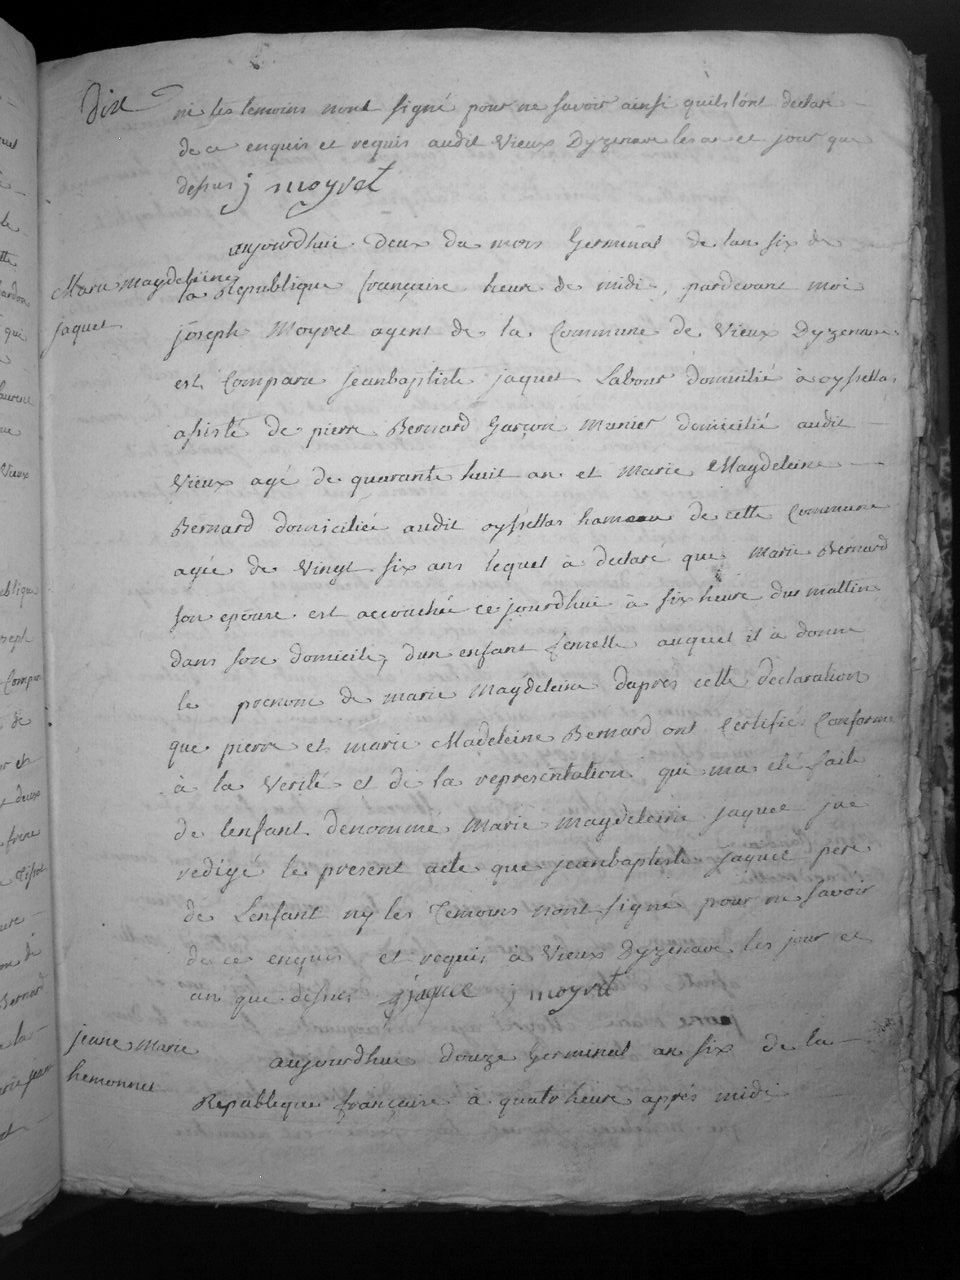 dix
ni les temoins nont signé pour ne savoir ainsi quils lont declaré
de ce enquis et requis audit Vieux Dyzenave les an et jour que
dessus j moyret
aujourdhui deux du mois Germinal de lan six de
Marie magdeleine
la Republique françaire heure de midi, pardevant moi
jaquet
joseph Moyret agent de la Commune de Vieux Dyzenave
est Comparu jeanbaptiste jaquet Labour domicilié à oyssellas
asisté de pierre Bernard Garçon Munier domicilié audit
Vieux agé de quarante huit an et Marie Magdeleine
Bernard domiciliée audit oyssellas hameau de cette Commune
agée de Vingt six ans lequel à declaré que Marie Bernard
son epouse est accouchée ce jourdhui à six heure du mattin
dans son domicile, dun enfant femelle auquel il à donné
le prenom de marie Magdeleine dapres cette declaration
que pierre et marie Madeleine Bernard ont Certifié Conforme
à la Verité et de la representation qui ma eté faite
de lenfant denommé Marie Magdeleine jaquet jaé
redigé le present acte que jeanbaptiste jaquet pere
de Lenfant ny les Temoins nont signé pour ne savoir
de ce enquis et requis a Vieux Dyzenave les jour et
an que dessus jaquet j moyret
jeane Marie
aujourdhui douze Germinal an six de la
hemonnet
Republique françaire à quatr heure aprés midi